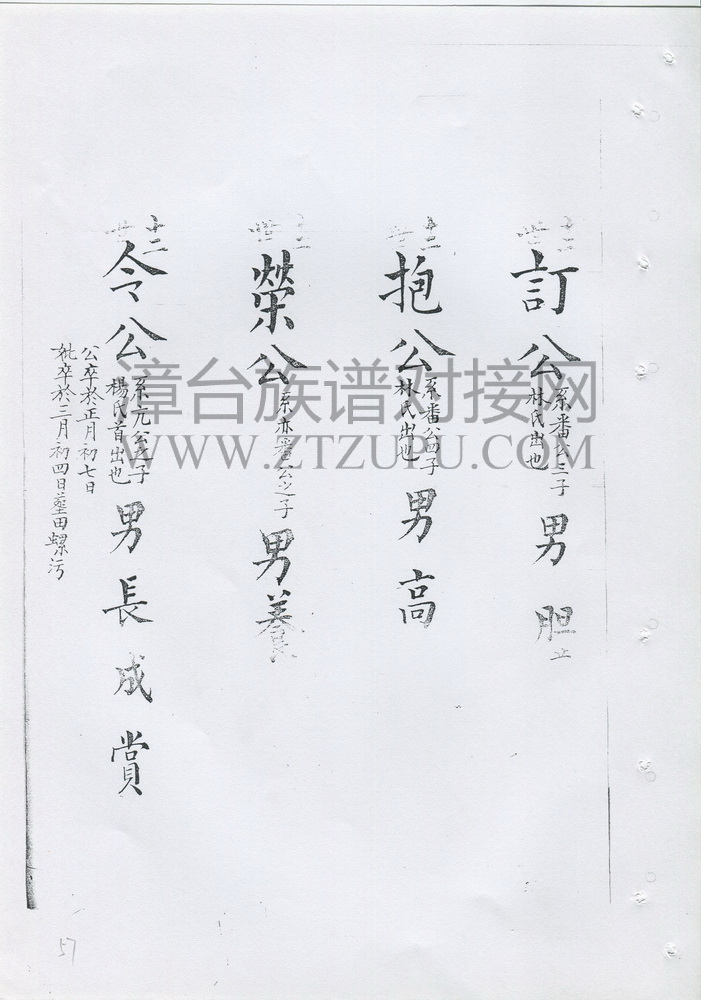 十二世
訂公
系番公三子
林氏出也
男 胆
止
十二世
抱公
系番公四子
林氏出也
男高
十二世
榮公
系亦番公之子
男養
十二世
令公
系亢公之子
楊氏首出也
男長成賞
公卒於正月初七日
妣卒於三月初四日塟田螺污
漳台族谱对接网
WWW.ZTZUPU.COM
57